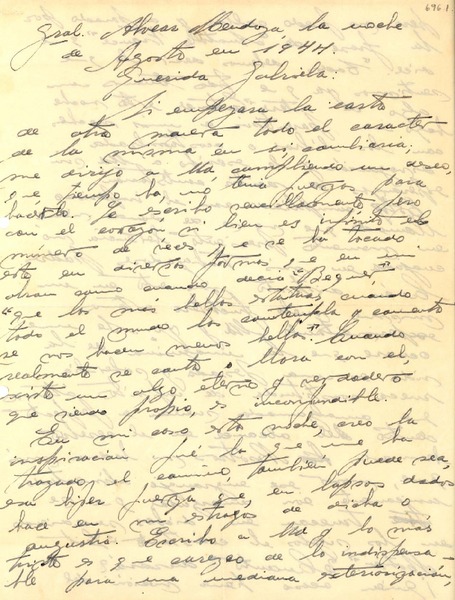 696 1
Gral. Alvear Mendoza, la noche
de Agosto en 1944
Querida Gabriela:
Si empezara la carta
de otra manera todo el caracter
de la misma en si cambiaria;
me dirijo a Ud. cumpliendo un deseo,
q-e tiempo ha, no tenia fuerzas para
hacerlo. Le escribo sencillamente pero
con el corazon si bien es infinito el
número de veces q-e se ha tocado
esto en diversas formas q-e en mi
obran como cuando decia "Bequer"
"que las más bellas cuando
todo el mundo las contempla y comenta
se nos hacen menos bellas". Cuando
realmente se canta o llora con el,
existe un algo eterno y verdadero
que siendo propio, es inconfundible.
En mi caso esta noche, creo la
inspiración fué la que me ha
trazado el camino, también puede sea,
esa hiper fuerza que, en lapsos dados
hace en mi estragos de dicha o
angustia. Escribo a Ud y lo más
triste es que carezco de lo indispensa-
ble para una mediana exteriorización,